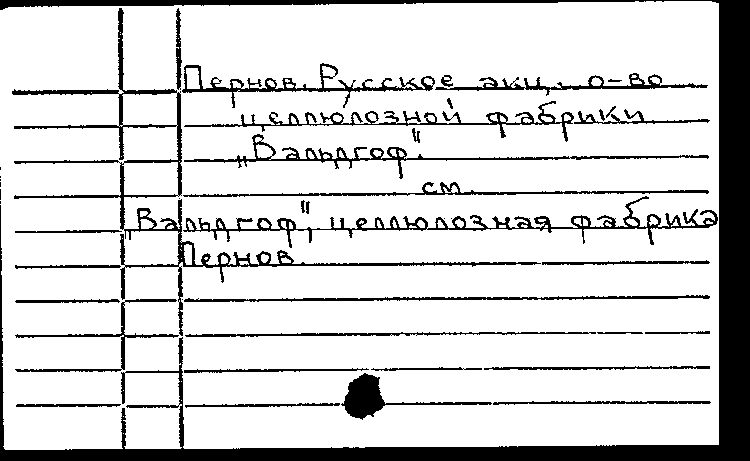 Пернов. Русское акц. о-во
целлюлозной фабрики
„Вальдгоф".
см.
„Вальдгоф", целлюлозная фабрика
Пернов.